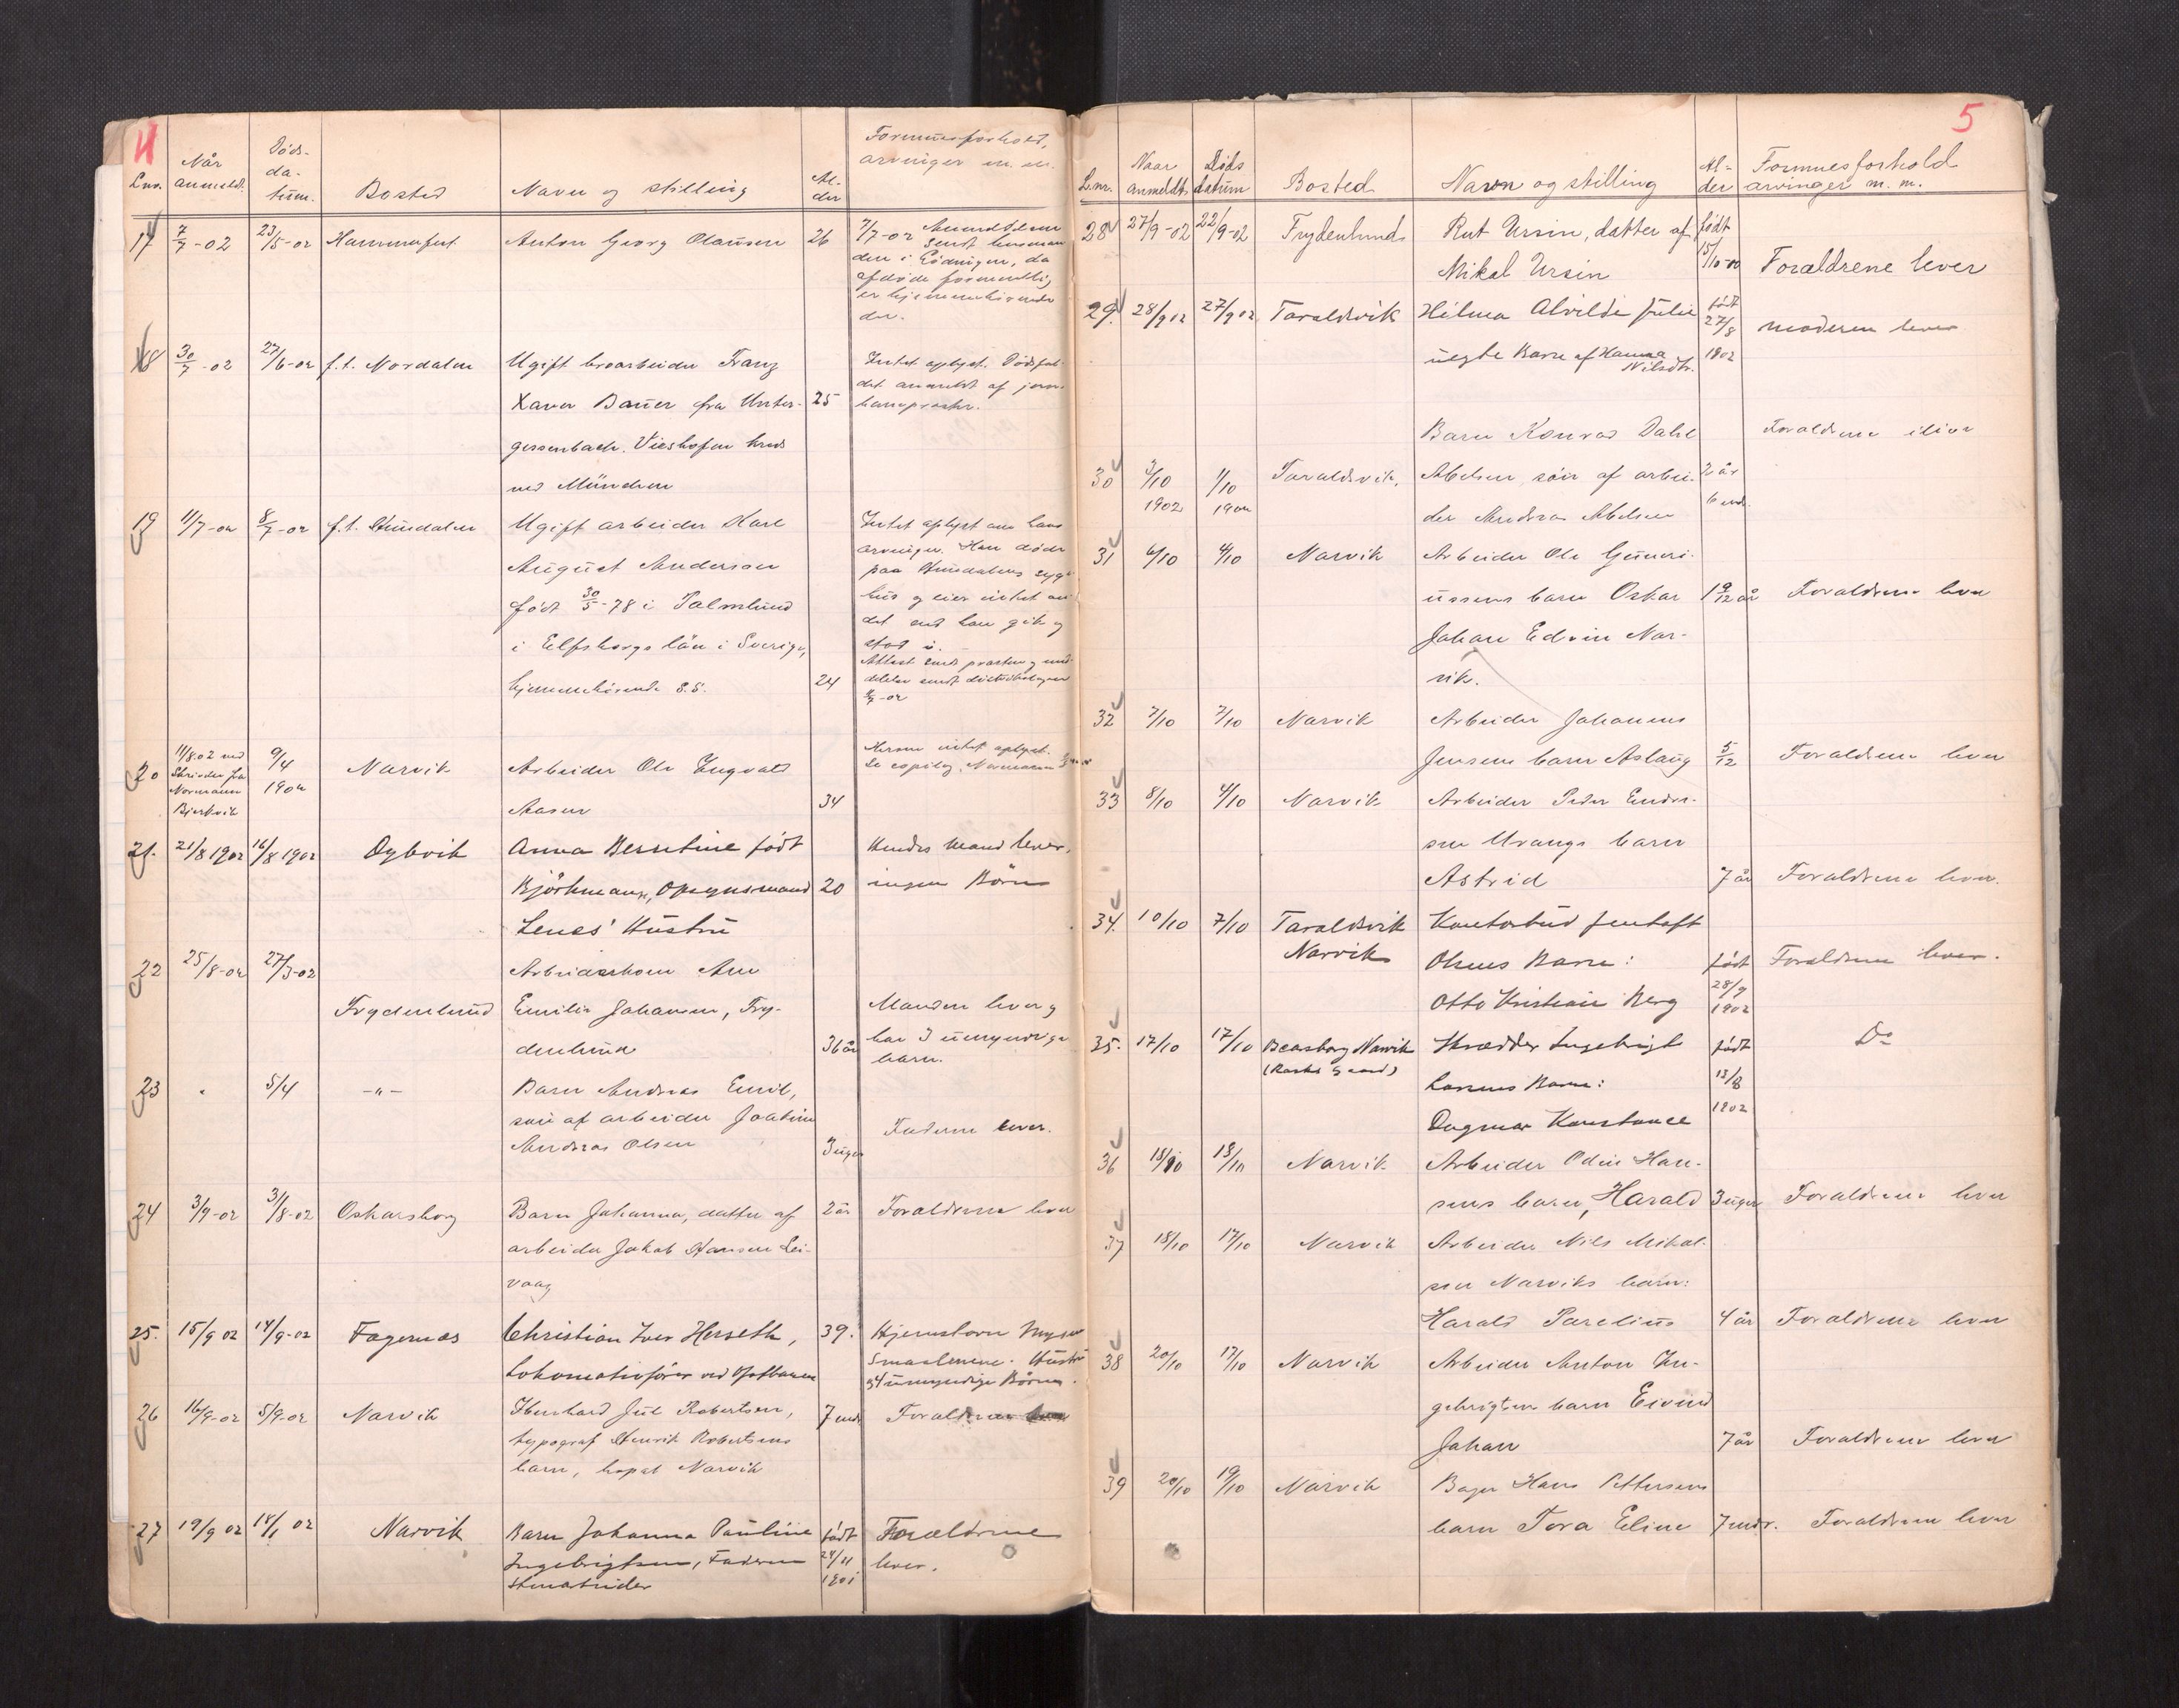 4
Lnr.
Når
anmeldt.
Døds-
da-
tum.
Bosted
Navn og stilling
Al-
der
Formuesforhold,
arvinger m. m.
17
7/7-02
23/5-02
Hammerfest
Anton Georg Olausen
26
7/7-02 Anmeldelsen
sendt lensman
den i Lødingen, da
afdøde formentlig
er hjemmehørende
der.
18
30/7-02
27/6-02
f.t. Nordalen
Ugift broarbeider Franz
Xaver Bauer fra Unter-
25
gessenbach. Vieshofen kreds
ved München
Intet oplyst. Dødsfal-
det anmeldt af jern-
banepresten.
19
11/7-02
8/7-02
f.t. Hundalen
Ugift arbeider Karl
August Anderson
født 30/5-78 i Palmlund
i Elfsborgs län i Sverige,
hjemmehørende s.s.
24
Intet oplyst om hans
arvinger. Han døde
paa Hundalens syge
hus og eier intet an-
det end han gik og
stod i.
Attest sendt presten og med-
delelse sendt distriktslægen
20
11/8 02 ved
Skrivelse fra
Normann
Bjerkvik
9/4
1902
Narvik
Arbeider Ole Ingvald
Aasen
34
Herom intet oplyst.
21.
21/8 1902
16/8 1902
Oybvik
Anna Berntine født
Björkmann, Opsynsmand
20
Lenes' Hustru
Hendes Mand lever,
ingen Børn
22
25/8-02
27/3-02
Frydenlund
Arbeiderkone Ane
Emilie Johansen, Fry-
denlund
36 år
Manden lever og
har 3 umyndige
barn.
23
"
5/4
-"-
Barn Andreas Emil,
søn af arbeider Joakim
Andreas Olsen
3 uger
Faderen lever.
24
3/9-02
3/8-02
Oskarsborg
Barn Johanna, datter af
2 år
arbeider Jakob Hansen Lei-
vaag
Forældrene lever
25.
15/9 02
14/9-02
Fagernæs
Christian Iver Herseth,
39.
Lokomotivfører ved Ofotbanen
Hjemstavn Mysen
Smaalenene. Hustru
og 4 umyndige Børn.
26
16/9-02
5/9-02
Narvik
Eberhard Jul Robertsen,
7 mdr
typograf Henrik Robertsens
barn, bopæl Narvik
Forældrene lever
27
19/9 02
18/1 02
Narvik
Barn Johanna Pauline
Ingebrigtsen, Faderen
Stenarbeider
født
24/11
1901
Forældrene
lever.
5
L.nr.
Naar
anmeldt.
Døds
datum
Bosted
Navn og stilling
Al-
der
Formuesforhold
arvinger m. m.
28
27/9-02
22/9-02
Frydenlund
Rut Ursin, datter af
Mikal Ursin
født
15/10-00
Forældrene lever
29.
28/9 02
27/9 02
Taraldsvik
Hilma Alvilde Julie
uegte Barn af Hanna
Nilsdtr.
født
27/8
1902
moderen lever
30
3/10
1902
1/10
1902
Taraldsvik.
Barn Konrad Dahl
Abelsen, søn af arbei-
der Andreas Abelsen
2 år
6 md.
Forældrene ilive
31
6/10
4/10
Narvik
Arbeider Ole Guneri-
ussens barn Oskar
Johan Edvin Nar-
vik.
1 9/12 år
Forældrene lever
32
7/10
7/10
Narvik
Arbeider Johannes
Jensens barn Aslaug
5/12
Forældrene lever
33
8/10
4/10
Narvik
Arbeider Peder Enders-
sen Urangs barn
Astrid
7 år
Forældrene lever.
34.
10/10
7/10
Taraldsvik
Narvik
Kontorbud Jentoft
Olsens Barn:
Otto Kristian Berg
født
28/9
1902
Forældrene lever.
35.
17/10
17/10
Beasborg Narvik
Skrædder Ingebrigt
Larsens Barn:
Dagmar Konstance
født
13/8
1902
Do
36
18/10
13/10
Narvik
Arbeider Odin Han-
sens barn, Harald
3 uger
Forældrene lever
37
18/10
17/10
Narvik
Arbeider Nils Mikal-
sen Narviks barn:
Harald Parelius
4 år
Forældrene lever
38
20/10
17/10
Narvik
Arbeider Anton In-
gebrigtsen barn Eivind
Johan
7 år
Forældrene lever
39
20/10
19/10
Narvik
Bager Hans Pettersens
barn Tora Eline
7 mdr.
Forældrene lever